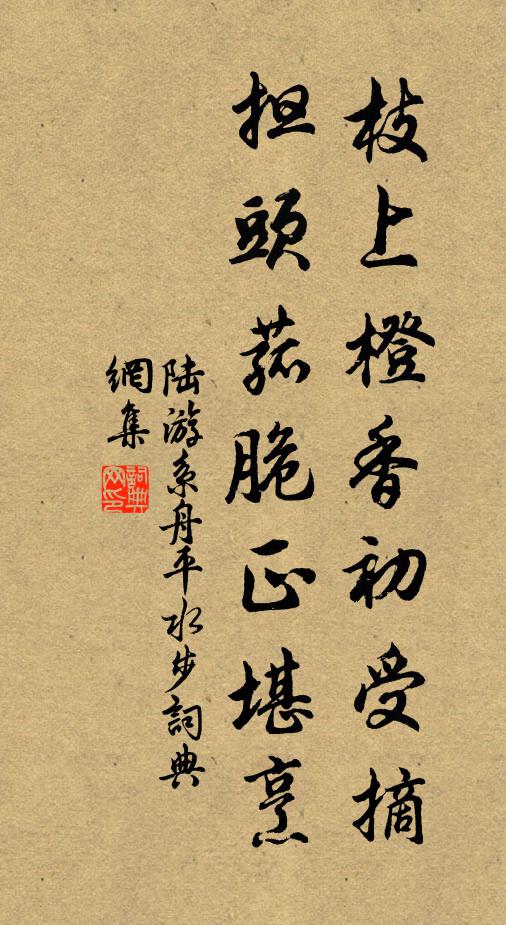 枝上橙香初受摘
担頭菰脆正堪烹
陆游系舟平水步詞典
網集
詞典网印